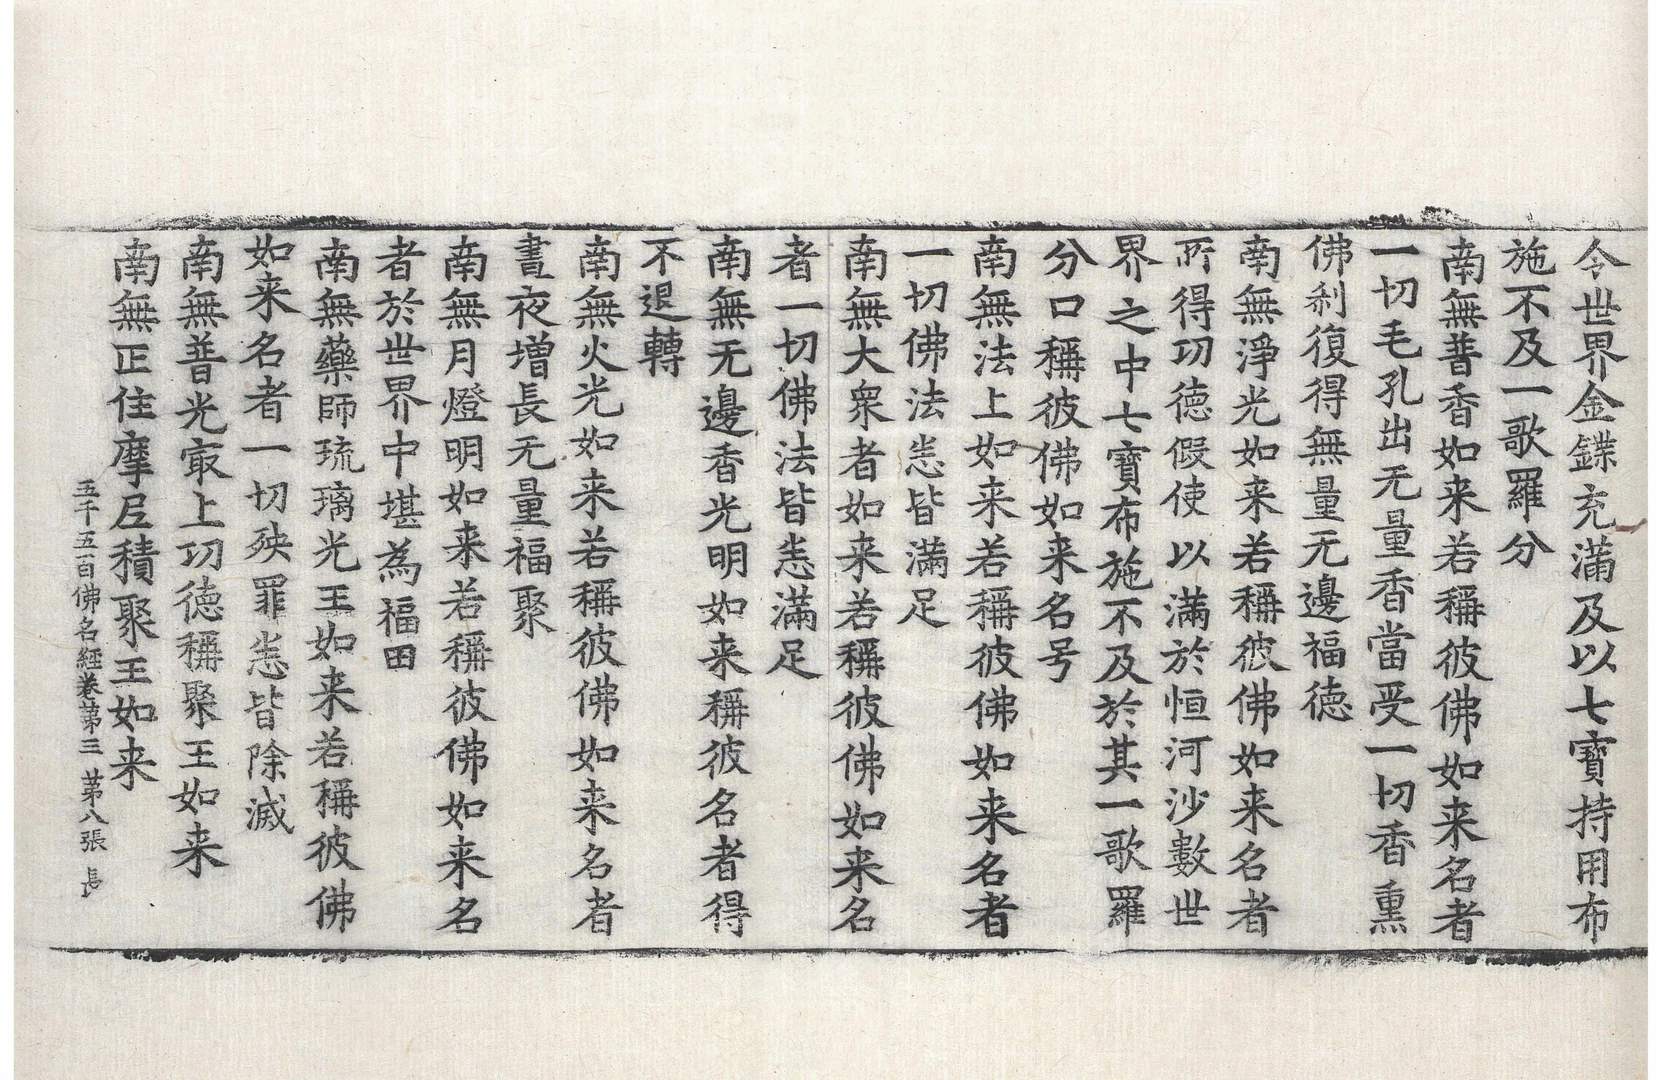 令世界金鍱充滿及以七寶持用布
施不及一歌羅分
南無普香如来若稱彼佛如来名者
一切毛孔出无量香當受一切香熏
佛刹復得無量无邊福德
南無淨光如来若稱彼佛如来名者
所得功德假使以滿於恒河沙數世
界之中七寶布施不及於其一歌羅
分口稱彼佛如来名号
南無法上如来若稱彼佛如来名者
一切佛法悉皆滿足
南無大衆者如来若稱彼佛如来名
者一切佛法皆悉滿足
南無无邊香光明如来稱彼名者得
不退轉
南無火光如来若稱彼佛如来名者
晝夜增長无量福聚
南無月燈明如来若稱彼佛如来名
者於世界中堪為福田
南無藥師琉璃光王如来若稱彼佛
如来名者一切殃罪悉皆除滅
南無普光㝡上功德稱聚王如来
南無正住摩尼積聚王如来
五千五百佛名經卷第三 第八張 長